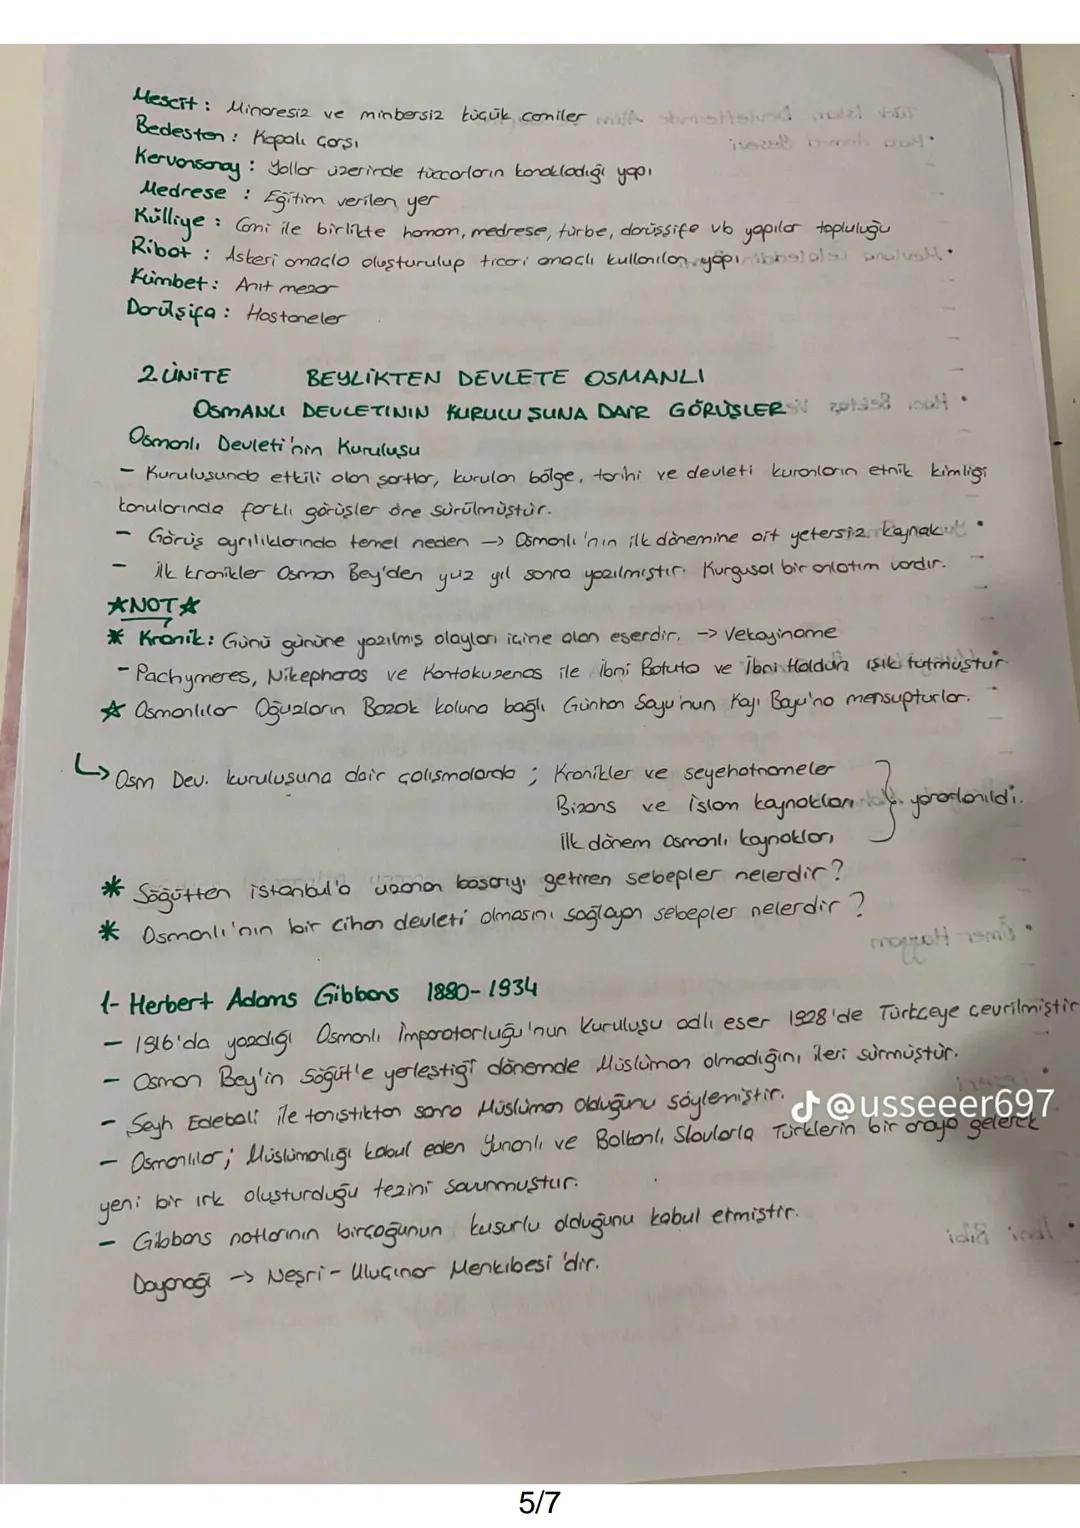 Mescit : Minaresiz ve minbersiz küçük camiler
Bedesten : Kapalı Çarşı
Kervansaray : Yollar üzerinde tüccarların konakladığı yapı
Medrese : Eğitim verilen yer
Külliye : Cami ile birlikte hamam, medrese, türbe, darüşşife vb yapılar topluluğu
Ribat : Askeri amaçla oluşturulup ticari amaçlı kullanılan yapı
Kümbet : Anıt mezar
Darülşifa : Hastaneler
2.ÜNİTE BEYLİKTEN DEVLETE OSMANLI
OSMANLI DEVLETİNİN KURULUŞUNA DAİR GÖRÜŞLER
Osmanlı Devleti'nin Kuruluşu
- Kuruluşunda etkili olan şartlar, kurulan bölge, tarihi ve devleti kuranların etnik kimliği
konularında farklı görüşler öne sürülmüştür.
- Görüş ayrılıklarında temel neden -> Osmanlı'nın ilk dönemine ait yetersiz kaynak
- İlk kronikler Osman Bey'den yüz yıl sonra yazılmıştır. Kurgusal bir anlatım vardır.
☆NOT☆
* Kronik: Günü gününe yazılmış olayları içine alan eserdir. -> Vekayiname
- Pachymeres, Nikephoros ve Kantakuzenos ile İbni Batuta ve İbni Haldun ışık tutmuştur
☆ Osmanlılar Oğuzların Bozok koluna bağlı Günhan Soyu'nun Kayı Boyu'na mensupturlar.
↳ Osm Dev. kuruluşuna dair çalışmalarda ; Kronikler ve seyehatnameler
Bizans ve İslam kaynakları } yararlanıldı.
İlk dönem Osmanlı kaynakları
* Söğütten İstanbul'a uzanan başarıyı getiren sebepler nelerdir?
* Osmanlı'nın bir cihan devleti olmasını sağlayan sebepler nelerdir?
1- Herbert Adams Gibbons 1880-1934
- 1916'da yazdığı Osmanlı İmparatorluğu'nun Kuruluşu adlı eser 1928'de Türkçeye çevrilmiştir
- Osman Bey'in Söğüt'e yerleştiği dönemde Müslüman olmadığını ileri sürmüştür.
- Şeyh Edebali ile tanıştıktan sonra Müslüman olduğunu söylemiştir.
@usseeer697
- Osmanlılar; Müslümanlığı kabul eden Yunanlı ve Balkanlı Slavlarla Türklerin bir araya gelerek
yeni bir ırk oluşturduğu tezini savunmuştur.
- Gibbons notlarının birçoğunun kusurlu olduğunu kabul etmiştir.
Dayanağı -> Neşri - Uluçınar Menkıbesi'dir.
5/7